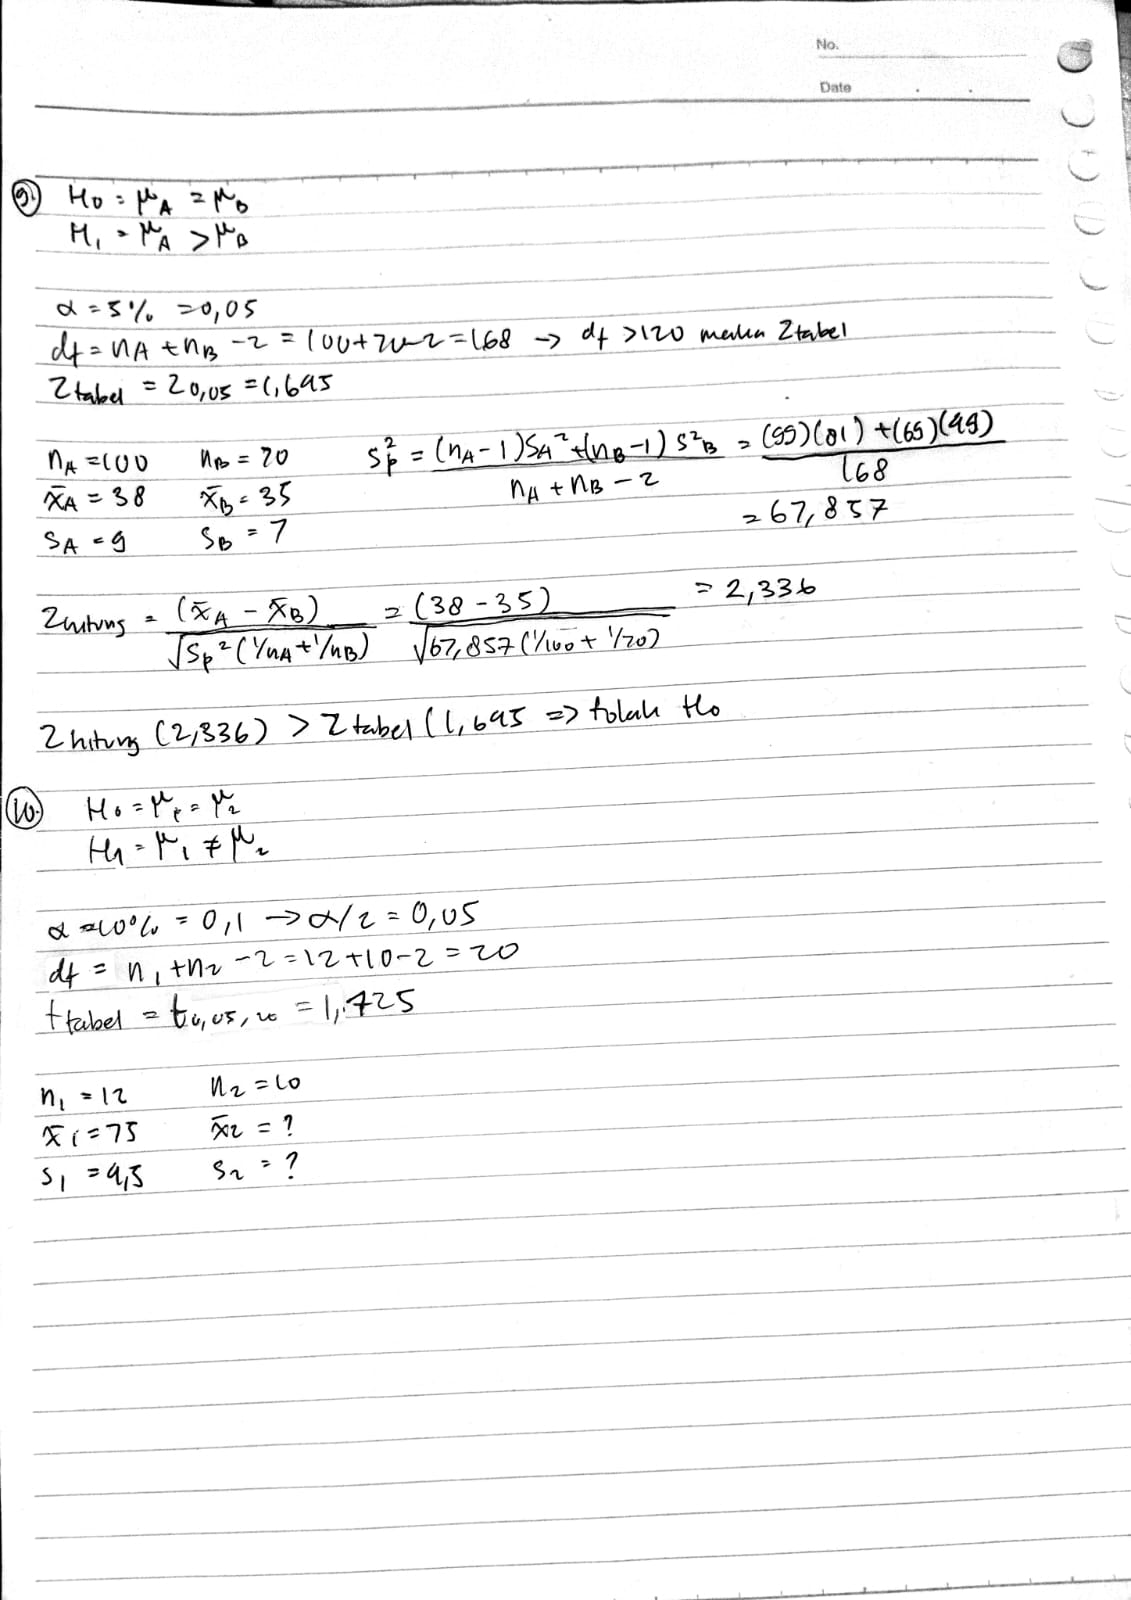 No.
Date
9. H0 = μA = μB
H1 = μA > μB
α = 5% = 0,05
df = nA + nB - 2 = 100 + 70 - 2 = 168 → df > 120 maka Ztabel
Ztabel = Z0,05 = 1,645
nA = 100 nB = 70 Sp² = (nA - 1) SA² + (nB - 1) S²B / nA + nB - 2 = (99)(81) + (69)(49) / 168
x̄A = 38 x̄B = 35 = 67,857
SA = 9 SB = 7
Zhitung = (x̄A - x̄B) / √Sp² (1/nA + 1/nB) = (38 - 35) / √67,857 (1/100 + 1/70) = 2,336
Zhitung (2,336) > Ztabel (1,645 => tolak H0
10. H0 = μ1 = μ2
H1 = μ1 ≠ μ2
α = 10% = 0,1 → α/2 = 0,05
df = n1 + n2 - 2 = 12 + 10 - 2 = 20
ttabel = t0,05, 20 = 1,725
n1 = 12 n2 = 10
x̄1 = 75 x̄2 = ?
S1 = 4,5 S2 = ?